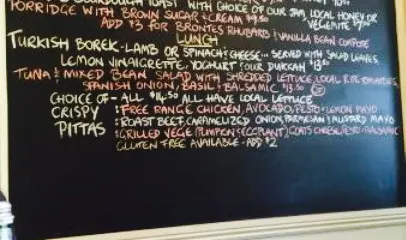 SOURDOUGH TOAST WITH CHOICE OF OUR JAM, LOCAL HONEY OR
PORRIDGE WITH BROWN SUGAR & CREAM $9.50 VEGEMITE
ADD $3 FOR BRONTES RHUBARB & VANILLA BEAN COMPOTE
LUNCH
TURKISH BOREK - LAMB OR SPINACH & CHEESE... SERVED WITH SALAD LEAVES
LEMON VINAIGRETTE, YOGHURT & OUR DUKKAH
TUNA & MIXED BEAN SALAD WITH SHREDDED LETTUCE, LOCAL RIPE TOMATOES,
SPANISH ONION, BASIL & BALSAMIC $13.50 GF
CHOICE OF - ALL $14.50 ALL HAVE LOCAL LETTUCE
CRISPY : FREE RANGE CHICKEN, AVOCADO, PESTO & LEMON MAYO
PITTAS : ROAST BEEF, CARAMELIZED ONION, PARMESAN & MUSTARD MAYO
: GRILLED VEGE (PUMPKIN & EGGPLANT) GOATS CHEESE, PESTO & BALSAMIC
GLUTEN FREE AVAILABLE - ADD $2